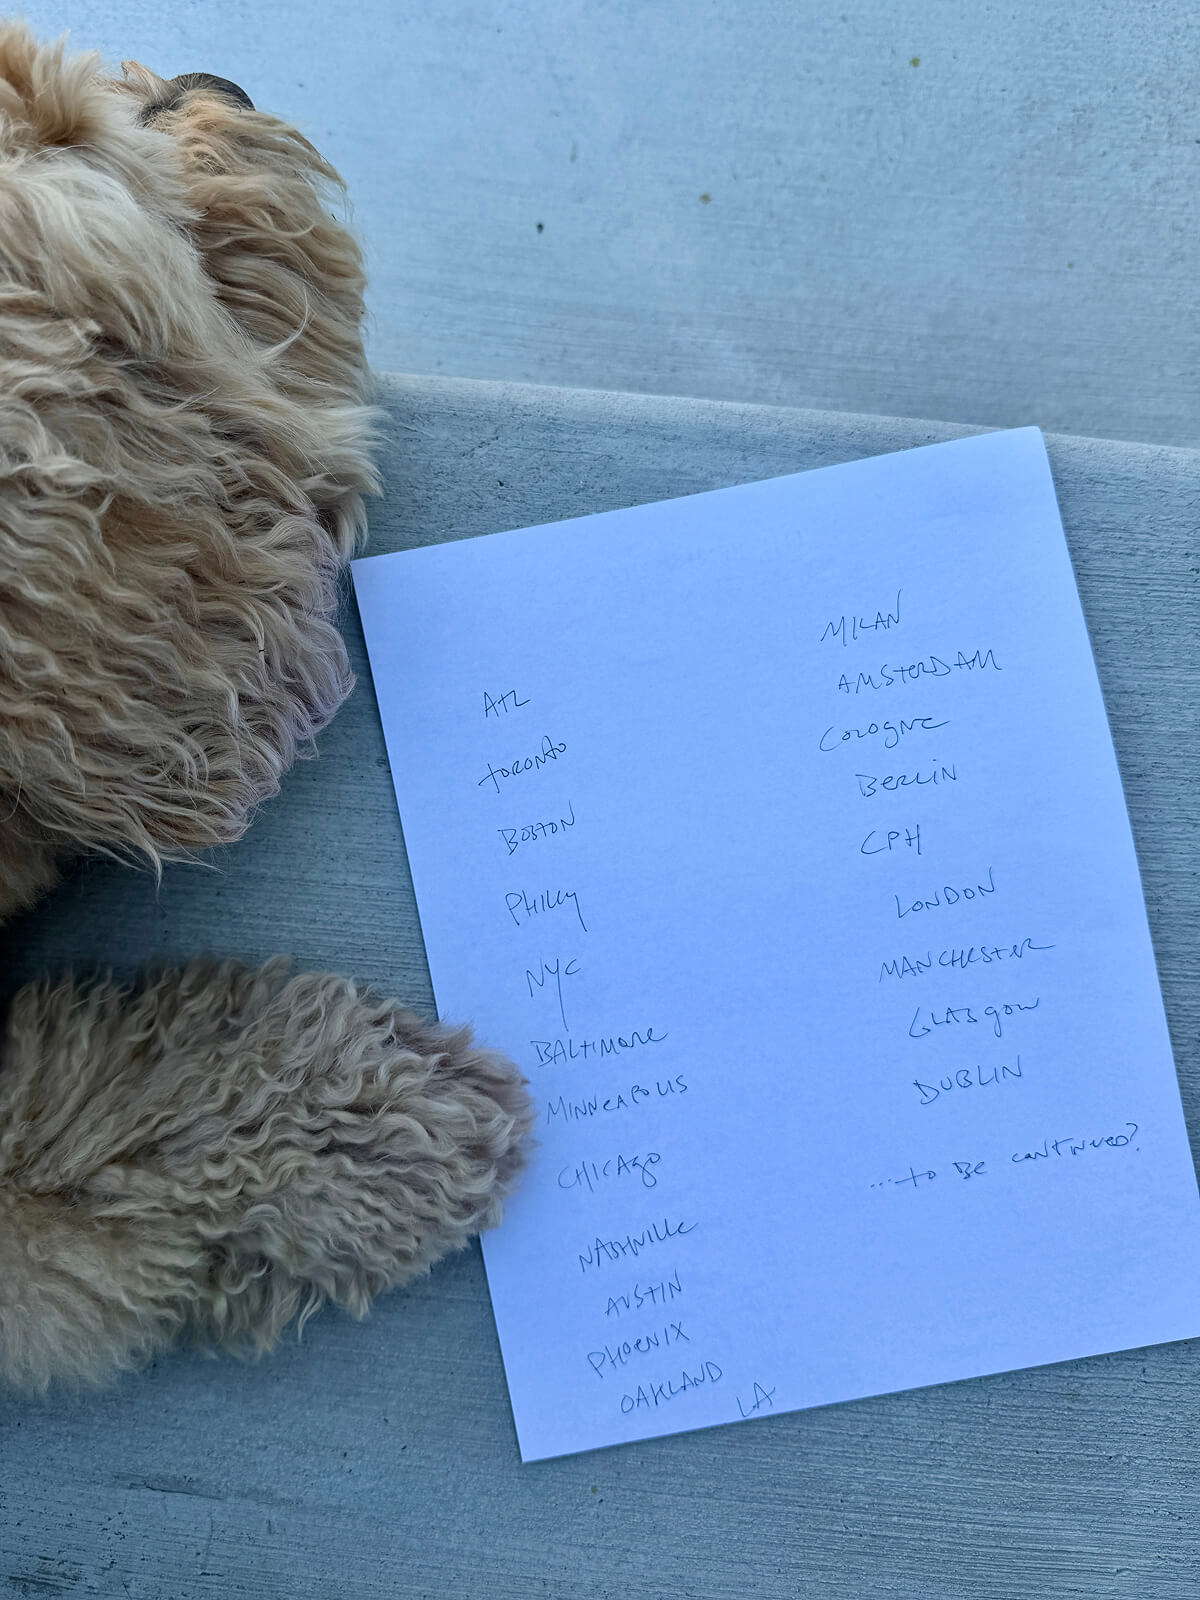 ATL
TORONTO
BOSTON
PHILLY
NYC
BALTIMORE
MINNEAPOLIS
CHICAGO
NASHVILLE
AUSTIN
PHOENIX
OAKLAND
LA
MILAN
AMSTERDAM
COLOGNE
BERLIN
CPH
LONDON
MANCHESTER
GLASGOW
DUBLIN
...TO BE CONTINUED?